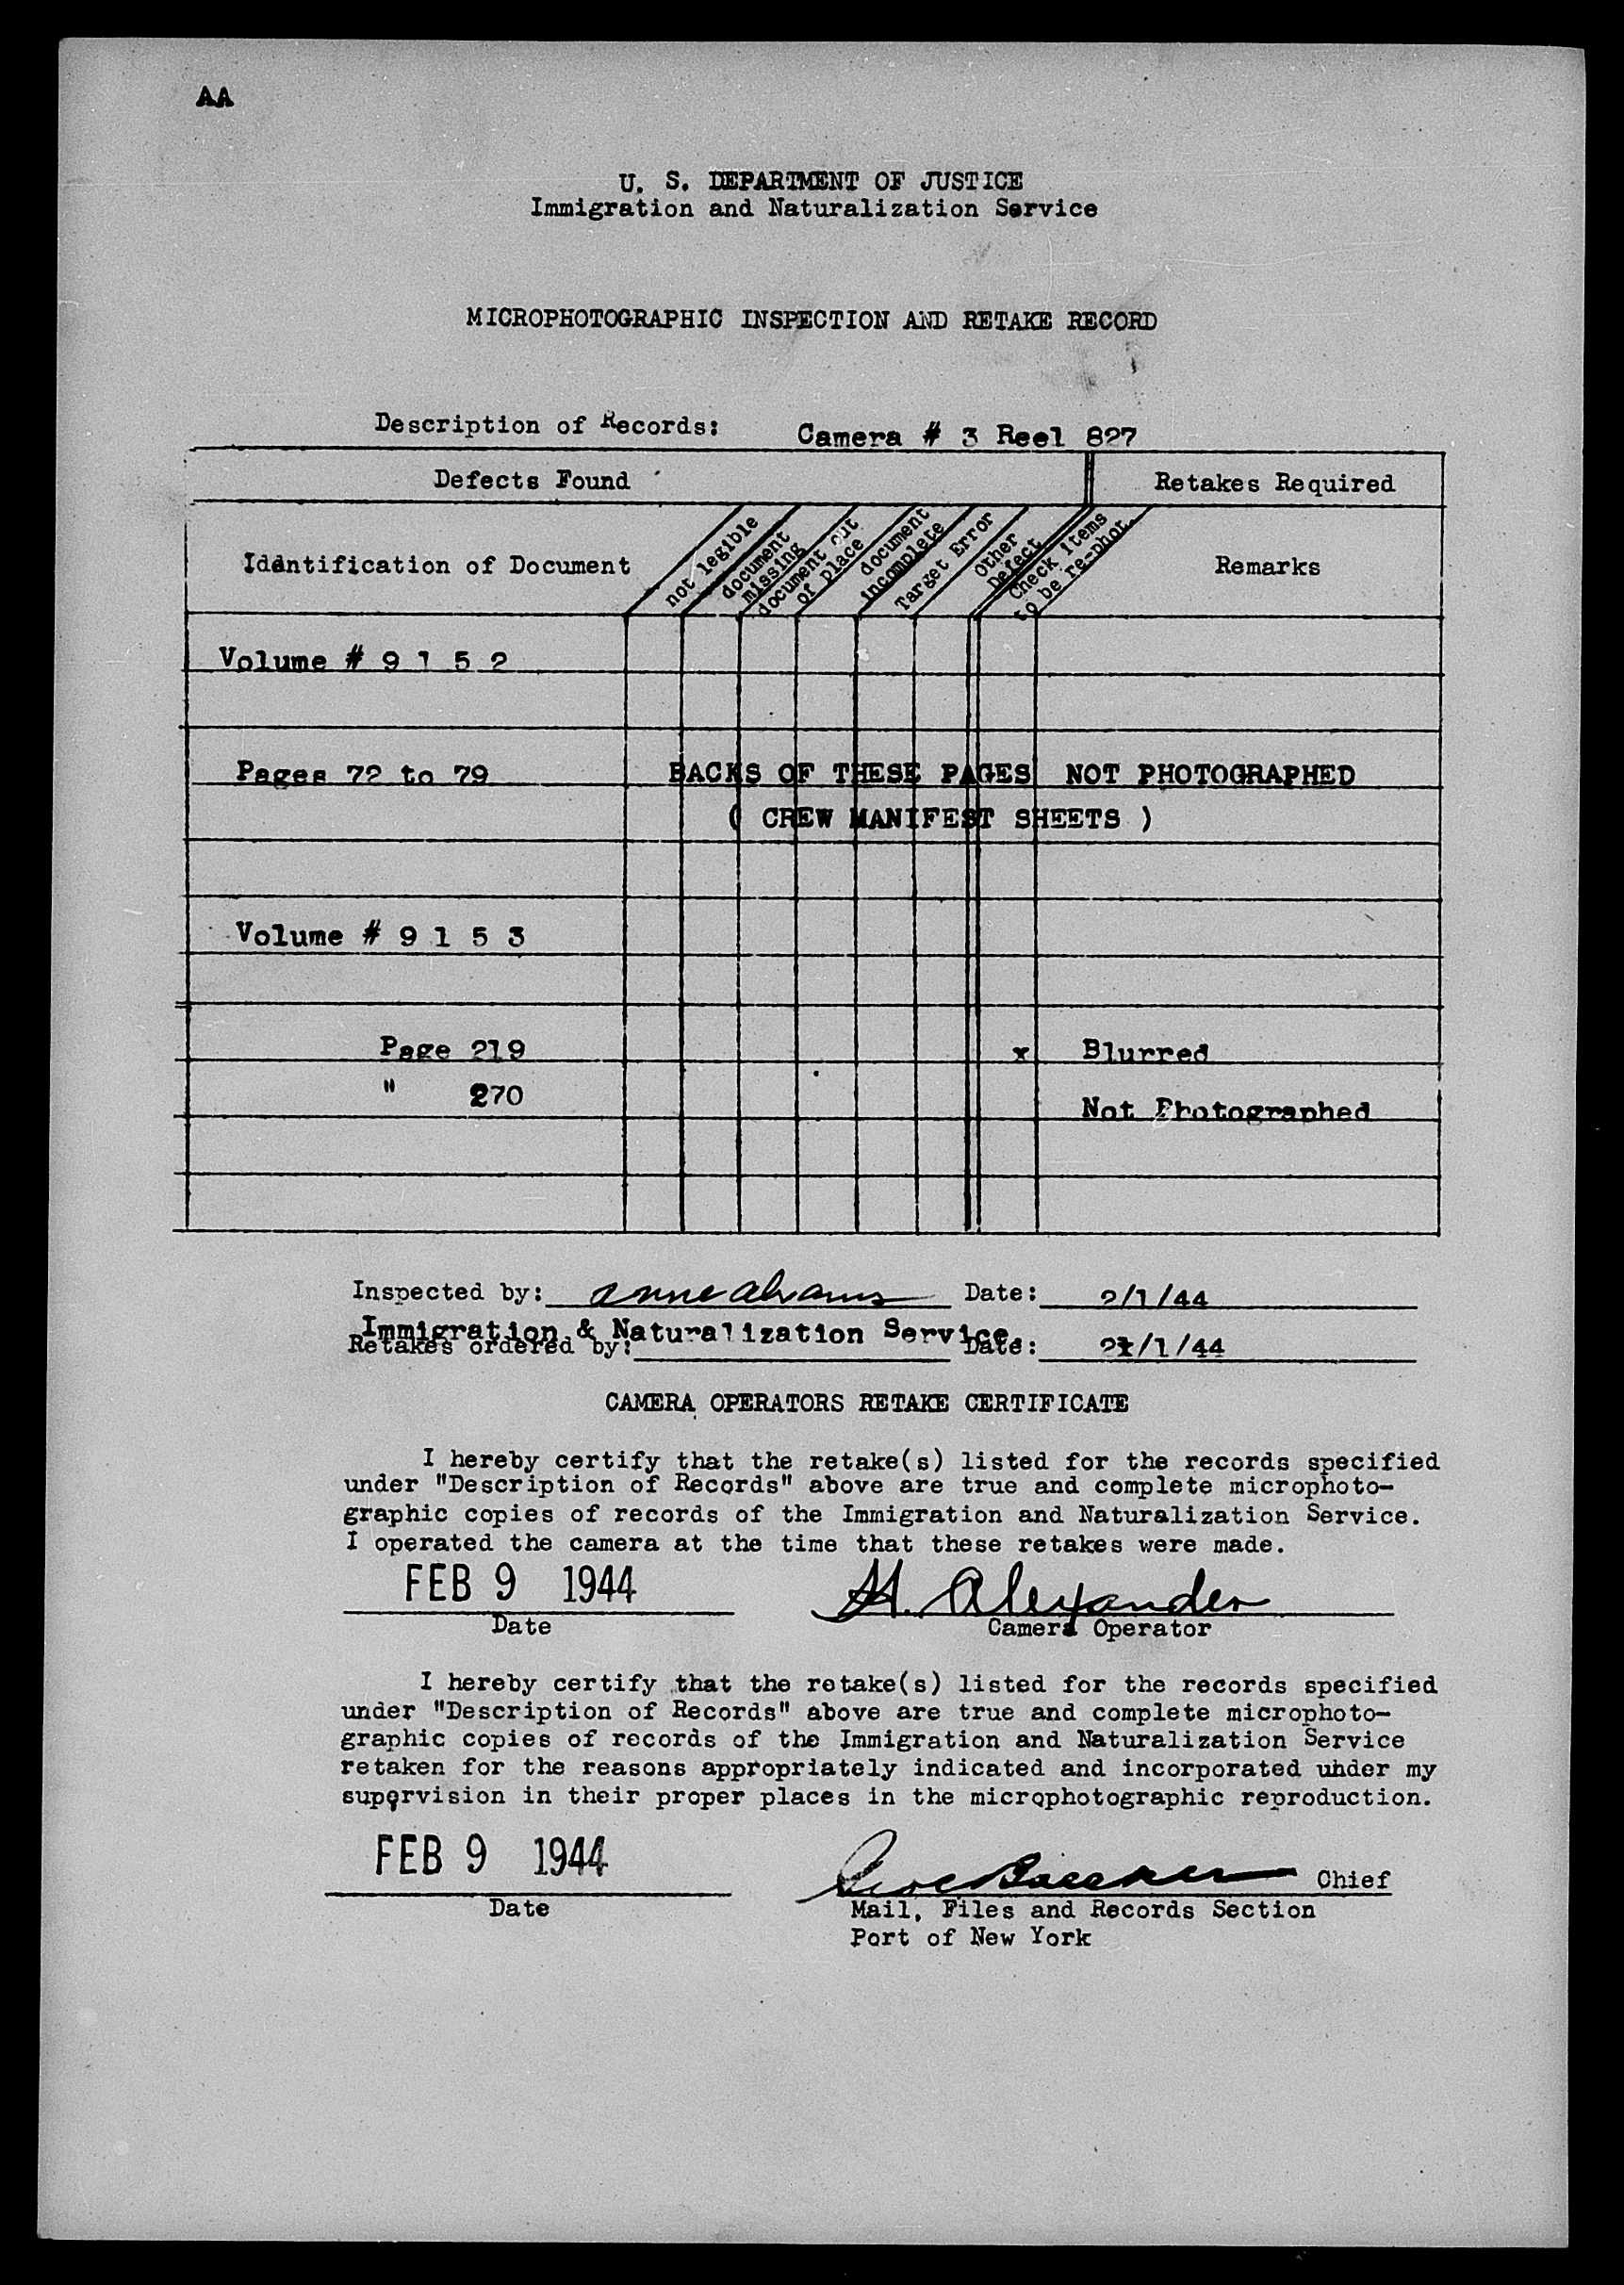 AA
U. S. DEPARTMENT OF JUSTICE
Immigration and Naturalization Service
MICROPHOTOGRAPHIC INSPECTION AND RETAKE RECORD
Description of Records: Camera # 3 Reel 827
Defects Found Retakes Required
Idantification of Document
not legible
document missing
document out of place
document incomplete
Target Error
Other Defect
Check Items to be re-phot.
Remarks
Volume # 9 1 5 2
Pages 72 to 79 BACKS OF THESE PAGES NOT PHOTOGRAPHED
( CREW MANIFEST SHEETS )
Volume # 9 1 5 3
Page 219 x Blurred
" 270 Not Photographed
Inspected by: Anne Abrams Date: 2/1/44
Immigration & Naturalization Service
Retakes ordered by: Date: /1/44
CAMERA OPERATORS RETAKE CERTIFICATE
I hereby certify that the retake(s) listed for the records specified
under "Description of Records" above are true and complete microphoto-
graphic copies of records of the Immigration and Naturalization Service.
I operated the camera at the time that these retakes were made.
FEB 9 1944 H. Alexander
Date Camera Operator
I hereby certify that the retake(s) listed for the records specified
under "Description of Records" above are true and complete microphoto-
graphic copies of records of the Immigration and Naturalization Service
retaken for the reasons appropriately indicated and incorporated under my
supervision in their proper places in the microphotographic reproduction.
FEB 9 1944 Chief
Date Mail, Files and Records Section
Port of New York